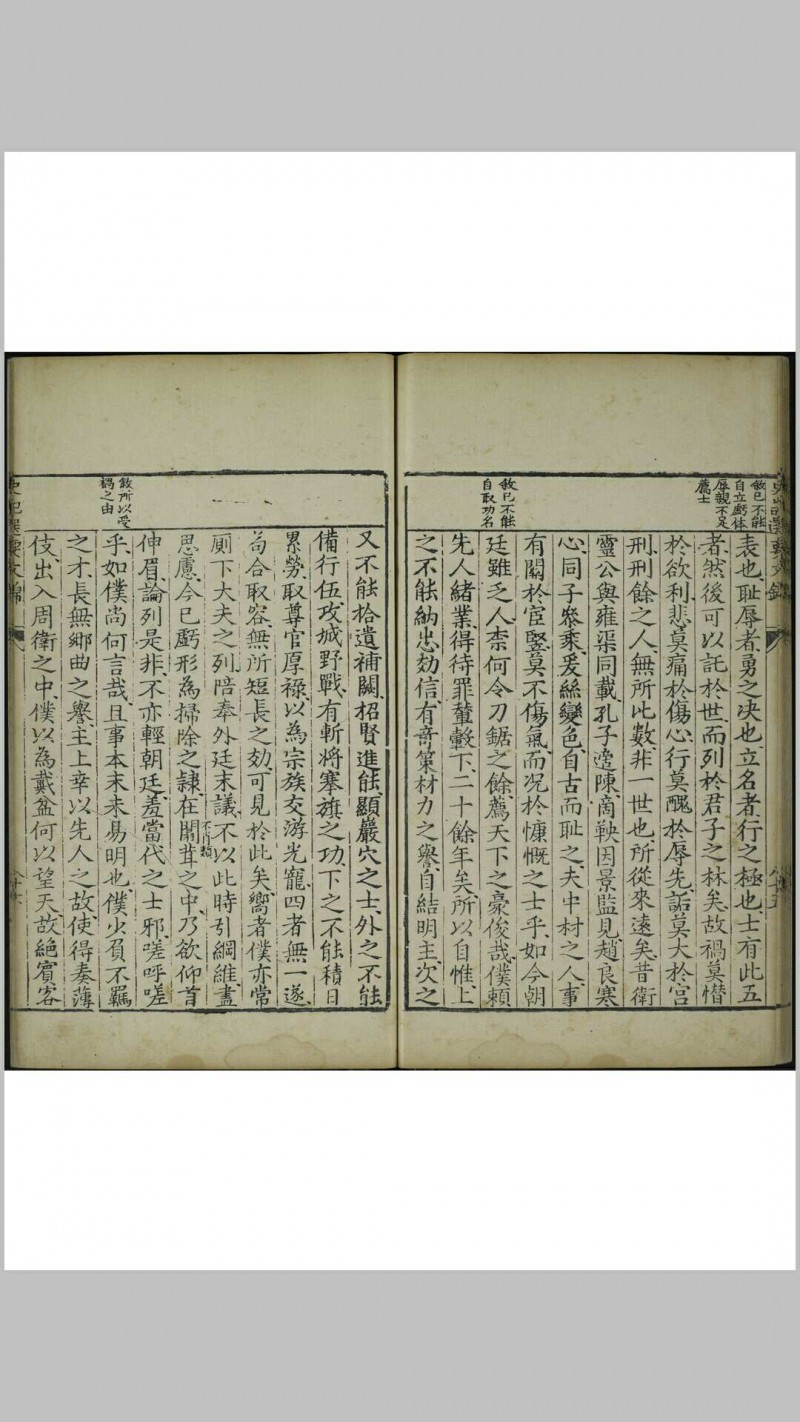 敘已不能
自立虧体
辱親不足
薦士
表也、耻辱者、勇之决也、立名者、行之極也、士有此五
者、然後可以託於世、而列於君子之林矣、故禍莫憯
於欲利、悲莫痛於傷心、行莫醜於辱先、詬莫大於宮
刑、刑餘之人、無所比數、非一世也、所從來遠矣、昔衛
靈公與雍渠同載、孔子適陳、商鞅因景監見、趙良寒
心、同子參乘、爰絲變色、自古而耻之、夫中材之人、事
有關於宦豎、莫不傷氣、而况於慷慨之士乎、如今朝
敘已不能
自取功名
廷雖乏人、柰何令刀鋸之餘、薦天下之豪俊哉、僕賴
先人緒業、得待罪輦轂下、二十餘年矣、所以自惟、上
之不能納忠効信、有竒策材力之譽、自結明主、次之
又不能拾遺補闕、招賢進能、顯巖穴之士、外之不能
備行伍、攻城野戰、有斬將搴旗之功、下之不能積日
累勞、取尊官厚祿、以為宗族交游光寵、四者無一遂、
苟合取容、無所短長之効、可見於此矣、嚮者僕亦常
厠下大夫之列、陪奉外廷末議、不以此時引綱維、盡
思慮、今已虧形、為掃除之隷、在闒茸之中、乃欲仰首
伸眉、論列是非、不亦輕朝廷、羞當代之士邪、嗟呼嗟
敘所以受
禍之由
乎、如僕尚何言哉、且事本末未易明也、僕少負不羈
之才、長無鄉曲之譽、主上幸以先人之故、使得奏薄
伎、出入周衛之中、僕以為戴盆何以望天、故絕賓客